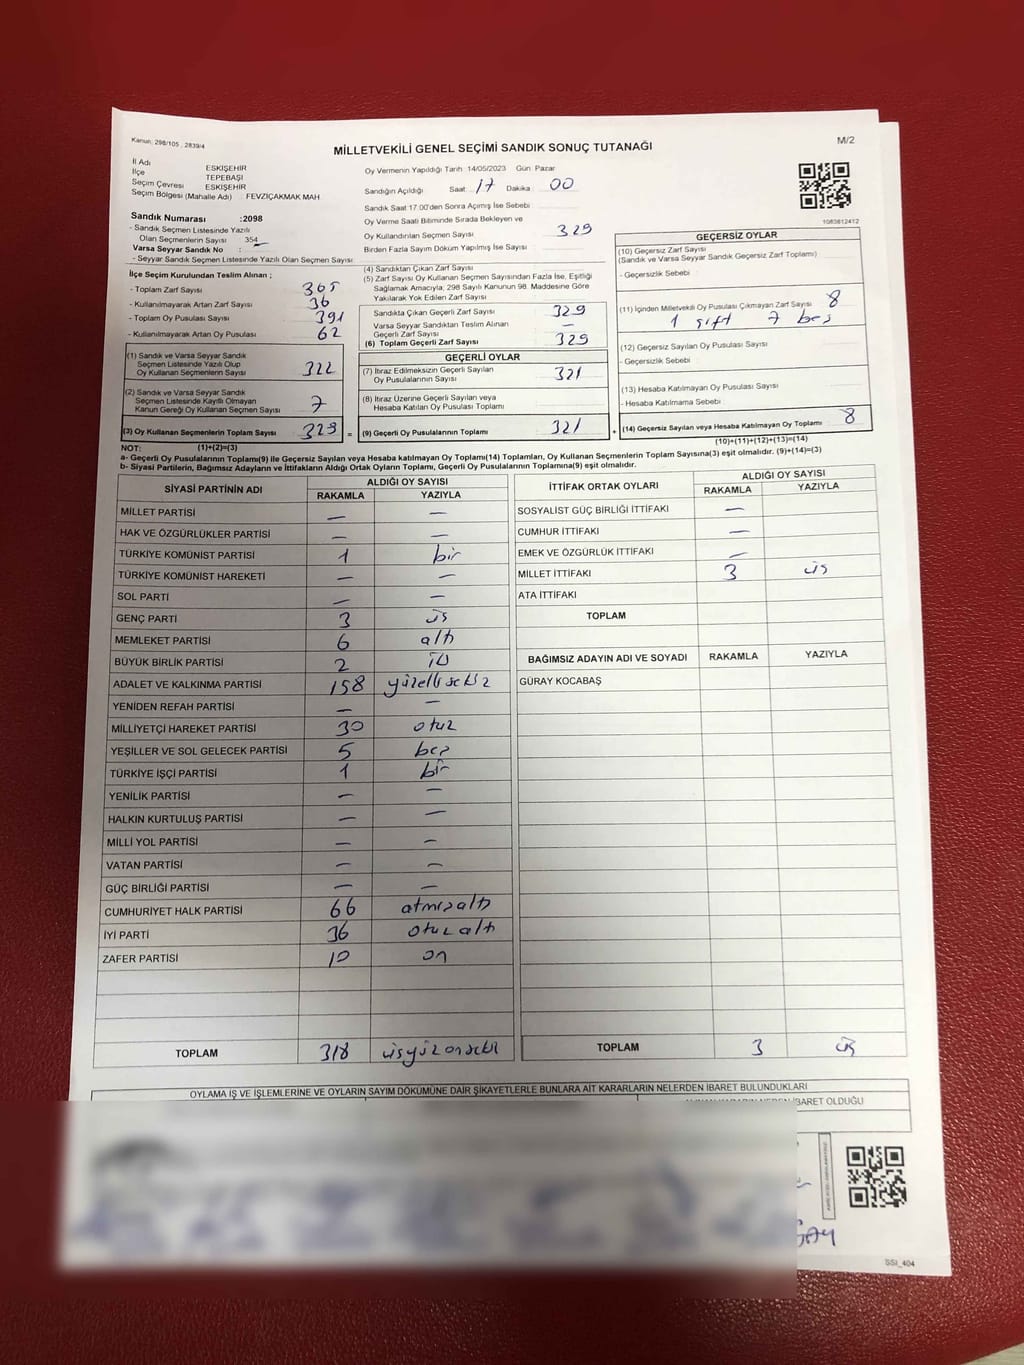 Kanun: 298/105 , 2839/4
MİLLETVEKİLİ GENEL SEÇİMİ SANDIK SONUÇ TUTANAĞI
M/2
İl Adı ESKİŞEHİR
İlçe TEPEBAŞI
Seçim Çevresi ESKİŞEHİR
Seçim Bölgesi (Mahalle Adı) FEVZİÇAKMAK MAH
Sandık Numarası :2098
- Sandık Seçmen Listesinde Yazılı
Olan Seçmenlerin Sayısı 354
Varsa Seyyar Sandık No :
- Seyyar Sandık Seçmen Listesinde Yazılı Olan Seçmen Sayısı
Oy Vermenin Yapıldığı Tarih 14/05/2023 Gün Pazar
Sandığın Açıldığı Saat 17 Dakika 00
Sandık Saat 17.00'den Sonra Açımış İse Sebebi
Oy Verme Saati Bitiminde Sırada Bekleyen ve
Oy Kullandırılan Seçmen Sayısı 329
Birden Fazla Sayım Döküm Yapılmış İse Sayısı
1083812412
İlçe Seçim Kurulundan Teslim Alınan ;
- Toplam Zarf Sayısı 365
- Kullanılmayarak Artan Zarf Sayısı 36
- Toplam Oy Pusulası Sayısı 391
- Kullanılmayarak Artan Oy Pusulası 62
(1) Sandık ve Varsa Seyyar Sandık
Seçmen Listesinde Yazılı Olup
Oy Kullanan Seçmenlerin Sayısı 322
(2) Sandık ve Varsa Seyyar Sandık
Seçmen Listesinde Kayıtlı Olmayan
Kanun Gereği Oy Kullanan Seçmen Sayısı 7
(3) Oy Kullanan Seçmenlerin Toplam Sayısı 329 =
(4) Sandıktan Çıkan Zarf Sayısı
(5) Zarf Sayısı Oy Kullanan Seçmen Sayısından Fazla İse, Eşitliği
Sağlamak Amacıyla, 298 Sayılı Kanunun 98. Maddesine Göre
Yakılarak Yok Edilen Zarf Sayısı
Sandıkta Çıkan Geçerli Zarf Sayısı 329
Varsa Seyyar Sandıktan Teslim Alınan
Geçerli Zarf Sayısı —
(6) Toplam Geçerli Zarf Sayısı 329
GEÇERLİ OYLAR
(7) İtiraz Edilmeksizin Geçerli Sayılan
Oy Pusulalarının Sayısı 321
(8) İtiraz Üzerine Geçerli Sayılan veya
Hesaba Katılan Oy Pusulası Toplamı
(9) Geçerli Oy Pusulalarının Toplamı 321 +
GEÇERSİZ OYLAR
(10) Geçersiz Zarf Sayısı
(Sandık ve Varsa Seyyar Sandık Geçersiz Zarf Toplamı)
- Geçersizlik Sebebi
(11) İçinden Milletvekili Oy Pusulası Çıkmayan Zarf Sayısı 8
1 çift 7 boş
(12) Geçersiz Sayılan Oy Pusulası Sayısı
- Geçersizlik Sebebi
(13) Hesaba Katılmayan Oy Pusulası Sayısı
- Hesaba Katılmama Sebebi
(14) Geçersiz Sayılan veya Hesaba Katılmayan Oy Toplamı 8
NOT: (1)+(2)=(3)
(10)+(11)+(12)+(13)=(14)
a- Geçerli Oy Pusulalarının Toplamı(9) ile Geçersiz Sayılan veya Hesaba katılmayan Oy Toplamı(14) Toplamları, Oy Kullanan Seçmenlerin Toplam Sayısına(3) eşit olmalıdır. (9)+(14)=(3)
b- Siyasi Partilerin, Bağımsız Adayların ve İttifakların Aldığı Ortak Oyların Toplamı, Geçerli Oy Pusulalarının Toplamına(9) eşit olmalıdır.
SİYASİ PARTİNİN ADI ALDIĞI OY SAYISI
RAKAMLA YAZIYLA
MİLLET PARTİSİ — —
HAK VE ÖZGÜRLÜKLER PARTİSİ — —
TÜRKİYE KOMÜNİST PARTİSİ 1 bir
TÜRKİYE KOMÜNİST HAREKETİ — —
SOL PARTİ — —
GENÇ PARTİ 3 üç
MEMLEKET PARTİSİ 6 altı
BÜYÜK BİRLİK PARTİSİ 2 iki
ADALET VE KALKINMA PARTİSİ 158 yüzellisekiz
YENİDEN REFAH PARTİSİ — —
MİLLİYETÇİ HAREKET PARTİSİ 30 otuz
YEŞİLLER VE SOL GELECEK PARTİSİ 5 beş
TÜRKİYE İŞÇİ PARTİSİ 1 bir
YENİLİK PARTİSİ — —
HALKIN KURTULUŞ PARTİSİ — —
MİLLİ YOL PARTİSİ — —
VATAN PARTİSİ — —
GÜÇ BİRLİĞİ PARTİSİ — —
CUMHURİYET HALK PARTİSİ 66 atmışaltı
İYİ PARTİ 36 otuz altı
ZAFER PARTİSİ 10 on
TOPLAM 318 üçyüzonsekiz
İTTİFAK ORTAK OYLARI ALDIĞI OY SAYISI
RAKAMLA YAZIYLA
SOSYALİST GÜÇ BİRLİĞİ İTTİFAKI —
CUMHUR İTTİFAKI —
EMEK VE ÖZGÜRLÜK İTTİFAKI —
MİLLET İTTİFAKI 3 üç
ATA İTTİFAKI
TOPLAM
BAĞIMSIZ ADAYIN ADI VE SOYADI RAKAMLA YAZIYLA
GÜRAY KOCABAŞ
TOPLAM 3 üç
OYLAMA İŞ VE İŞLEMLERİNE VE OYLARIN SAYIM DÖKÜMÜNE DAİR ŞİKAYETLERLE BUNLARA AİT KARARLARIN NELERDEN İBARET BULUNDUKLARI
İBARET OLDUĞU
SSİ_404